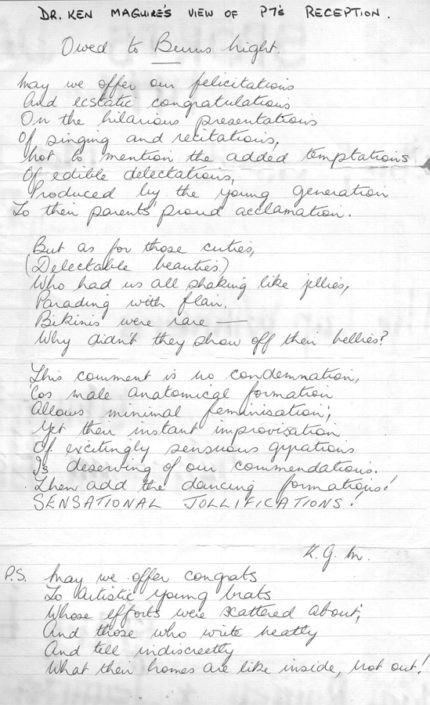 DR. KEN MAGUIRE'S VIEW OF P7's RECEPTION.
Owed to Burns Night.
May we offer our felicitations
And ecstatic congratulations
On the hilarious presentations
Of singing and recitations,
Not to mention the added temptations
Of edible delectations,
Produced by the young generation
To their parents' proud acclamation.
But as for those cuties,
(Delectable beauties)
Who had us all shaking like jellies,
Parading with flair.
Bikinis were rare —
Why didn't they show off their bellies?
This comment is no condemnation,
Cos male anatomical formation
Allows minimal feminisation;
Yet their instant improvisation
Of excitingly sensuous gyrations
Is deserving of our commendations.
Then add the dancing formations!
SENSATIONAL JOLLIFICATIONS!
K.G.M.
P.S. May we offer congrats
To artistic young brats
Whose efforts were scattered about;
And those who write neatly
And tell indiscreetly
What their homes are like inside, not out!